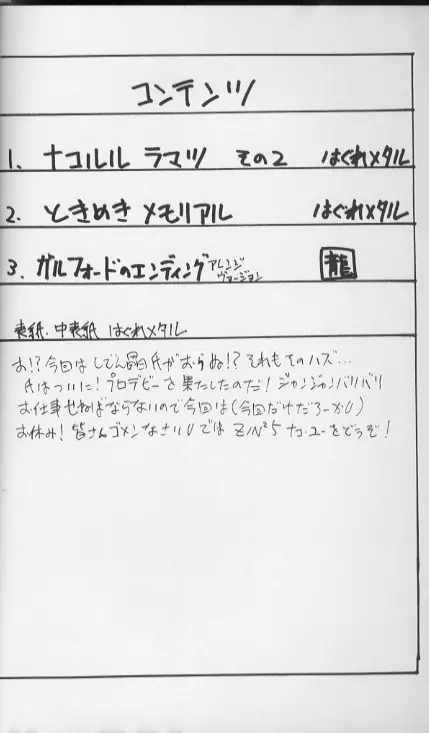 コンテンツ
1. ナコルル ラマツ その2 はぐれメタル
2. ときめき メモリアル はぐれメタル
3. ガルフォードのエンディング アレンジ ヴァージョン 龍
表紙・中表紙 はぐれメタル
お!? 今回は しでん 氏がおらぬ!? それもそのハズ…
氏はついに! プロデビーを果たしたのだ! ジャンジャンバリバリ
お仕事せねばならないので今回は(今回だけだろーが)
お休み! 皆さんゴメンなさい では をどうぞ!